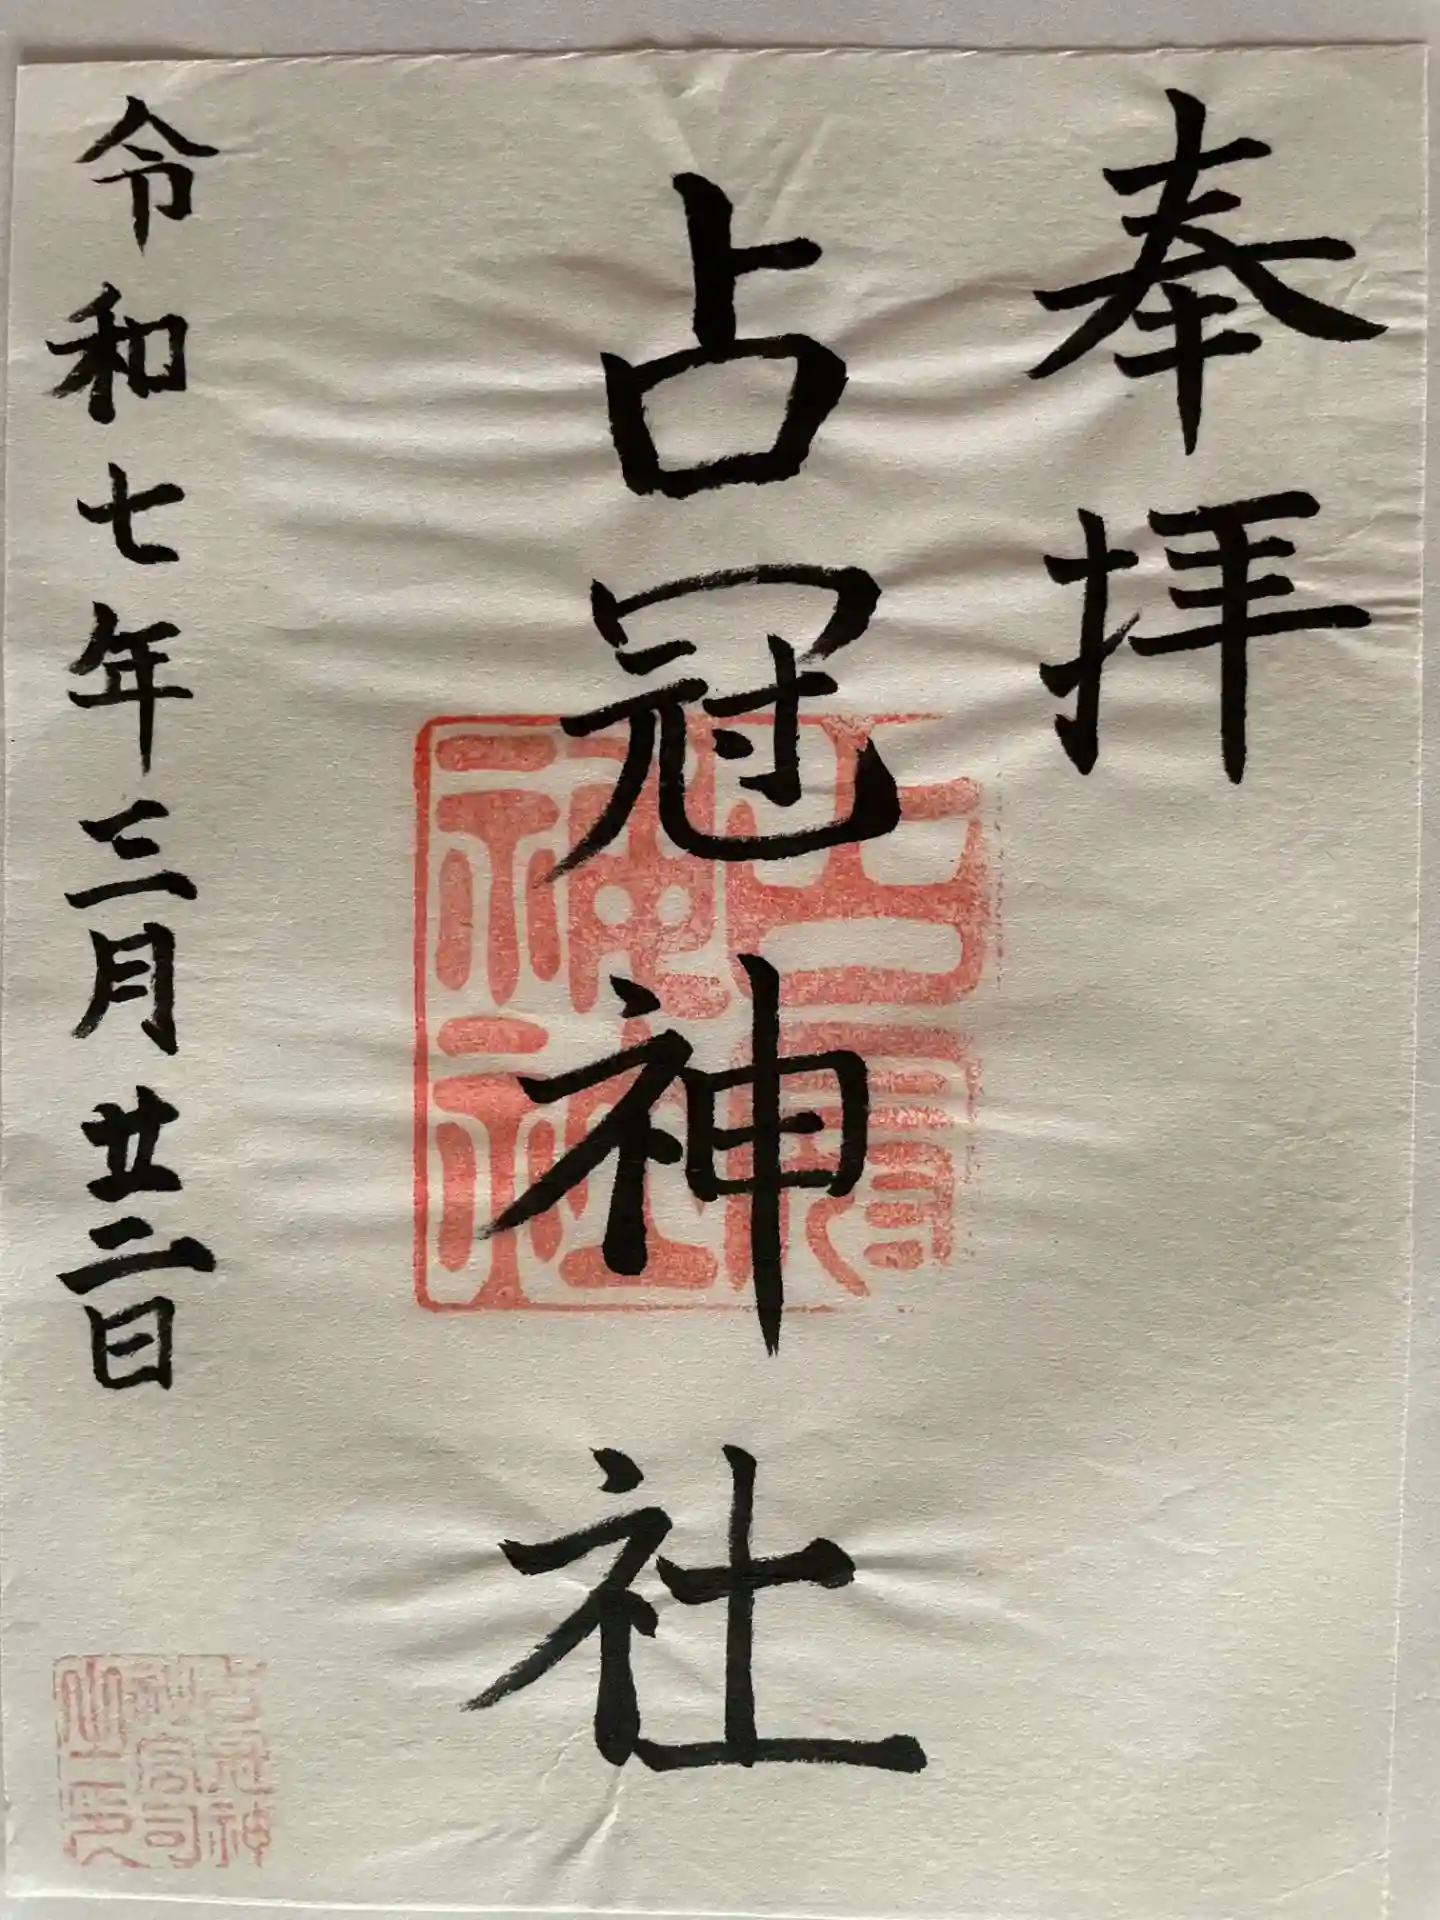 奉拝
占冠神社
令和七年三月廿二日
占冠神社
占冠神
社宮司
之印